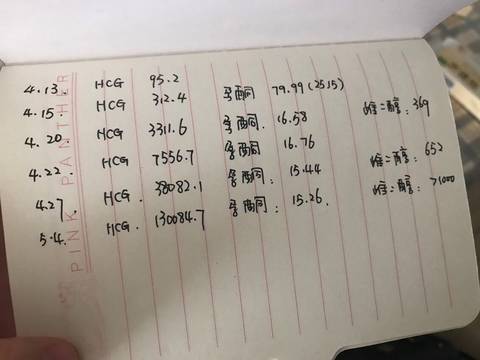 4.13 HCG 95.2
4.15. HCG 312.4 孕酮 79.99 (2515)
4.20 HCG 3311.6 孕酮. 16.58 雌二醇: 369
4.22. HCG 7556.7 孕酮 16.76
4.27 HCG. 38082.1 孕酮: 15.44 雌二醇: 652
5.4. HCG. 130084.7 孕酮: 15.26. 雌二醇: >1000
PINK PANTHER